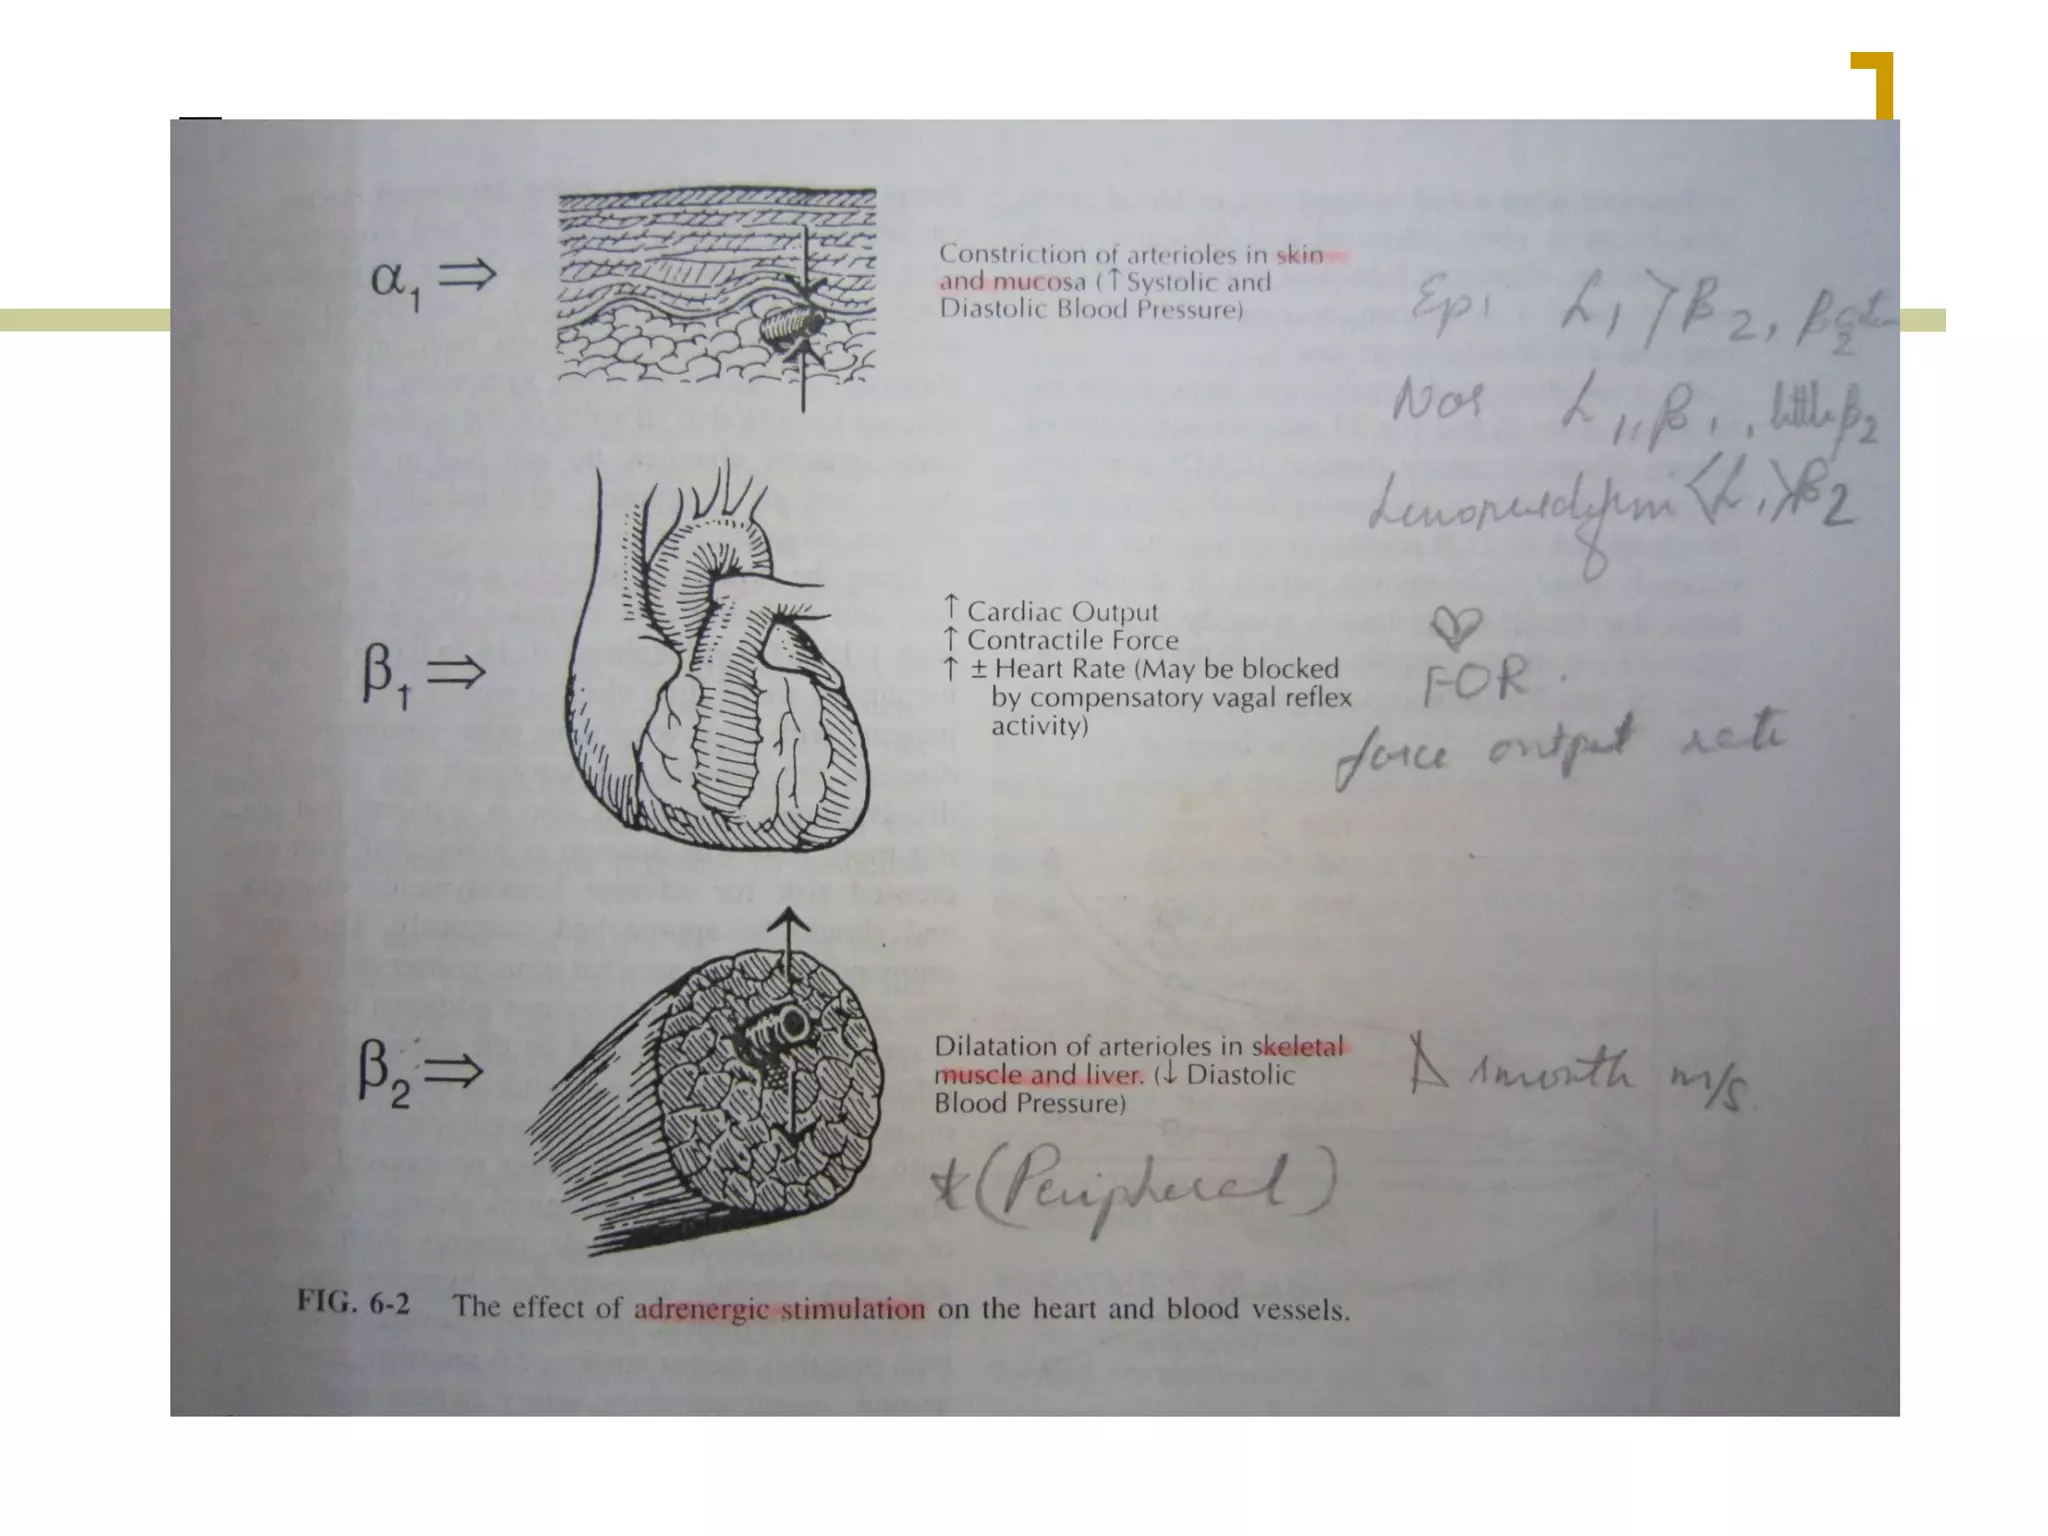 α₁ ⇒
Constriction of arterioles in skin
and mucosa (↑ Systolic and
Diastolic Blood Pressure)
Epi α₁ > β₂,
Nor α₁, β₁, little β₂
β₁ ⇒
↑ Cardiac Output
↑ Contractile Force
↑ ± Heart Rate (May be blocked
by compensatory vagal reflex
activity)
FOR
force output rate
β₂ ⇒
Dilatation of arterioles in skeletal
muscle and liver. (↓ Diastolic
Blood Pressure)
smooth m/s.
*(Peripheral)
FIG. 6-2 The effect of adrenergic stimulation on the heart and blood vessels.